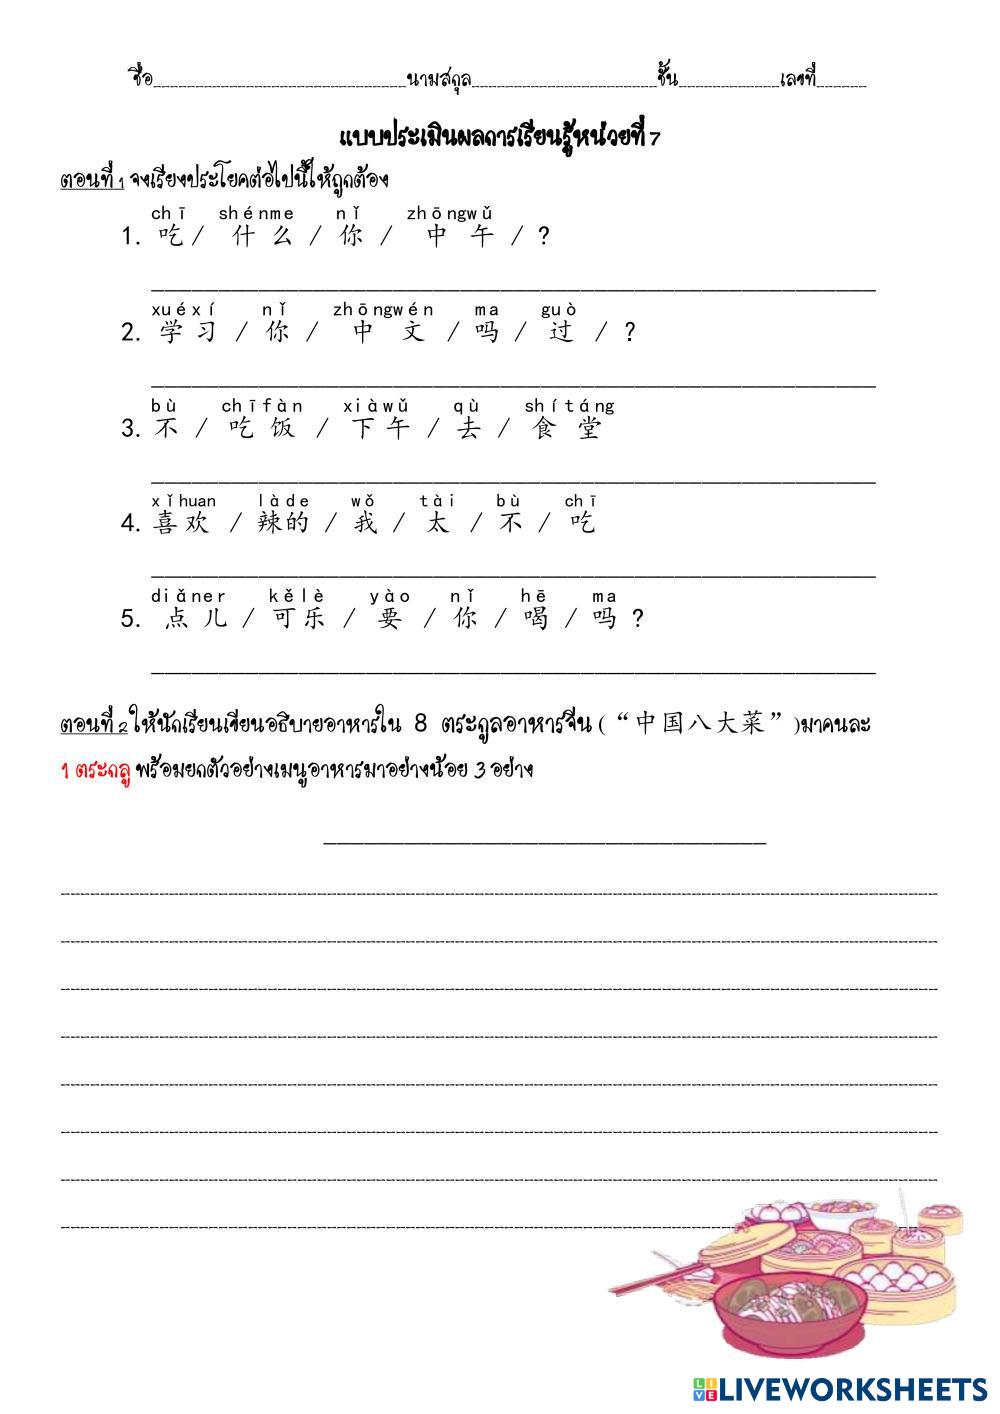 ชื่อ______________________________นามสกุล______________________ชั้น____________เลขที่______
แบบประเมินผลการเรียนรู้หน่วยที่ 7
ตอนที่ 1 จงเรียงประโยคต่อไปนี้ให้ถูกต้อง
chī shénme nǐ zhōngwǔ
1. 吃 / 什么 / 你 / 中午 / ?
xuéxí nǐ zhōngwén ma guò
2. 学习 / 你 / 中文 / 吗 / 过 / ?
bù chīfàn xiàwǔ qù shítáng
3. 不 / 吃饭 / 下午 / 去 / 食堂
xǐhuan làde wǒ tài bù chī
4. 喜欢 / 辣的 / 我 / 太 / 不 / 吃
diǎner kělè yào nǐ hē ma
5. 点儿 / 可乐 / 要 / 你 / 喝 / 吗 ?
ตอนที่ 2 ให้นักเรียนเขียนอธิบายอาหารใน 8 ตระกูลอาหารจีน (“中国八大菜”)มาคนละ
1 ตระกลู พร้อมยกตัวอย่างเมนูอาหารมาอย่างน้อย 3 อย่าง
LIVE LIVEWORKSHEETS